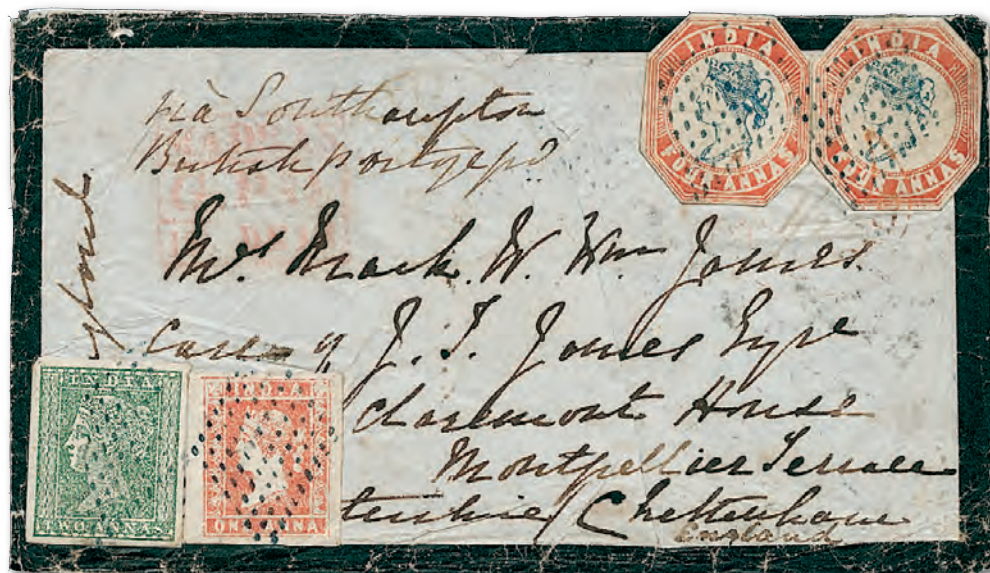 INDIA
FOUR ANNAS
INDIA
FOUR ANNAS
via Southampton
British
Mrs Mack. W. Wm Jones.
Care of J. T. Jones Esqre
Claremont House
Montpellier Terrace
Cheltenham
England
INDIA
TWO ANNAS
INDIA
ONE ANNA